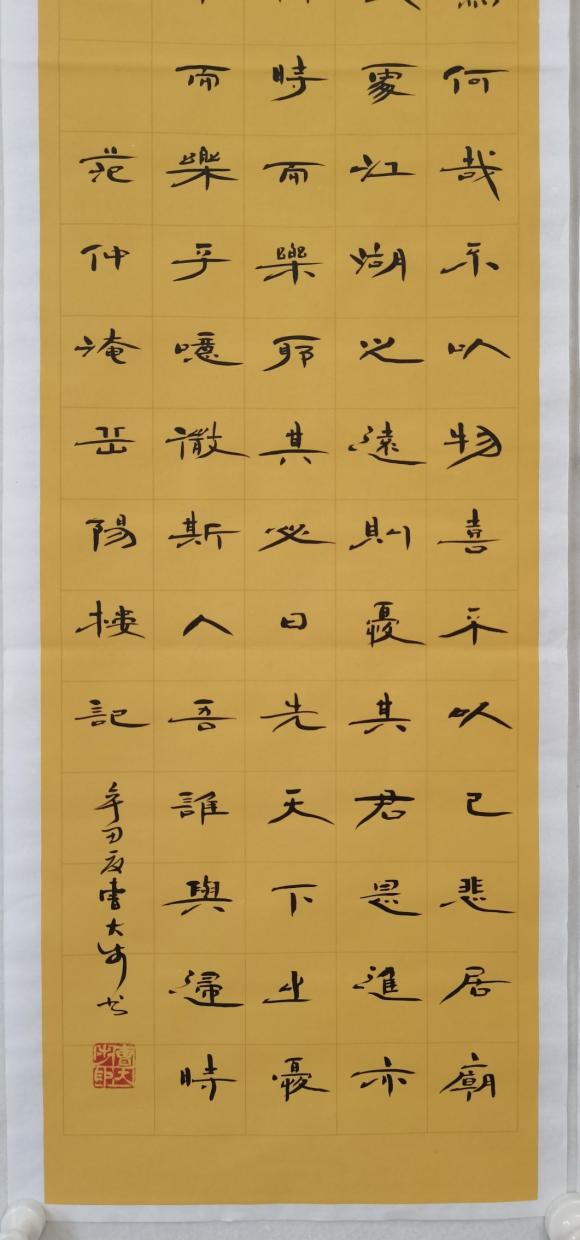 何哉不以物喜不以己悲居廟
處江湖之遠則憂其君是進亦
時而樂耶其必曰先天下之憂
而樂乎噫微斯人吾誰與歸時
范仲淹岳陽樓記
辛丑夏曹大书